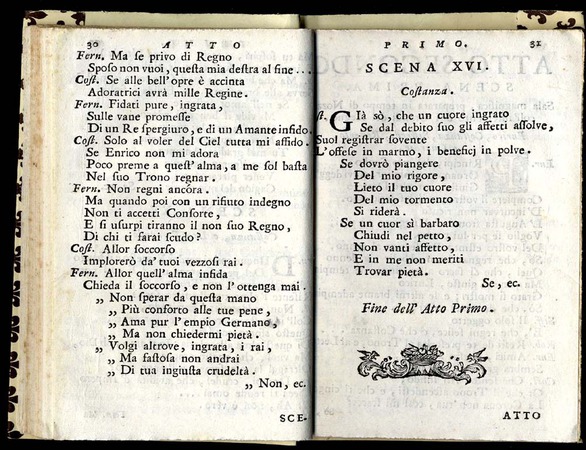 30 ATTO
Fern. Ma se privo di Regno
Sposo non vuoi, questa mia destra al fine ...
Cost. Se alle bell'opre è accinta
Adoratrici avrà mille Regine.
Fern. Fidati pure, ingrata,
Sulle vane promesse
Di un Re spergiuro, e di un Amante infido.
Cost. Solo al voler del Ciel tutta mi affido.
Se Enrico non mi adora
Poco preme a quest'alma, a me sol basta
Nel suo Trono regnar.
Fern. Non regni ancora.
Ma quando poi con un rifiuto indegno
Non ti accetti Consorte,
E si usurpi tiranno il non suo Regno,
Di chi ti farai scudo?
Cost. Allor soccorso
Implorerò da' tuoi vezzosi rai.
Fern. Allor quell'alma infida
Chieda il soccorso, e non l'ottenga mai.
„ Non sperar da questa mano
„ Più conforto alle tue pene,
„ Ama pur l'empio Germano,
„ Ma non chiedermi pietà.
„ Volgi altrove, ingrata, i rai,
„ Ma fastosa non andrai
„ Di tua ingiusta crudeltà.
„ Non, ec.
SCE-
PRIMO. 31
SCENA XVI.
Costanza.
st. Già sò, che un cuore ingrato
Se dal debito suo gli affetti assolve,
Suol registrar sovente
L'offese in marmo, i benefici in polve.
Se dovrò piangere
Del mio rigore,
Lieto il tuo cuore
Del mio tormento
Si riderà.
Se un cuor sì barbaro
Chiudi nel petto,
Non vanti affetto,
E in me non meriti
Trovar pietà.
Se, ec.
Fine dell' Atto Primo.
ATTO